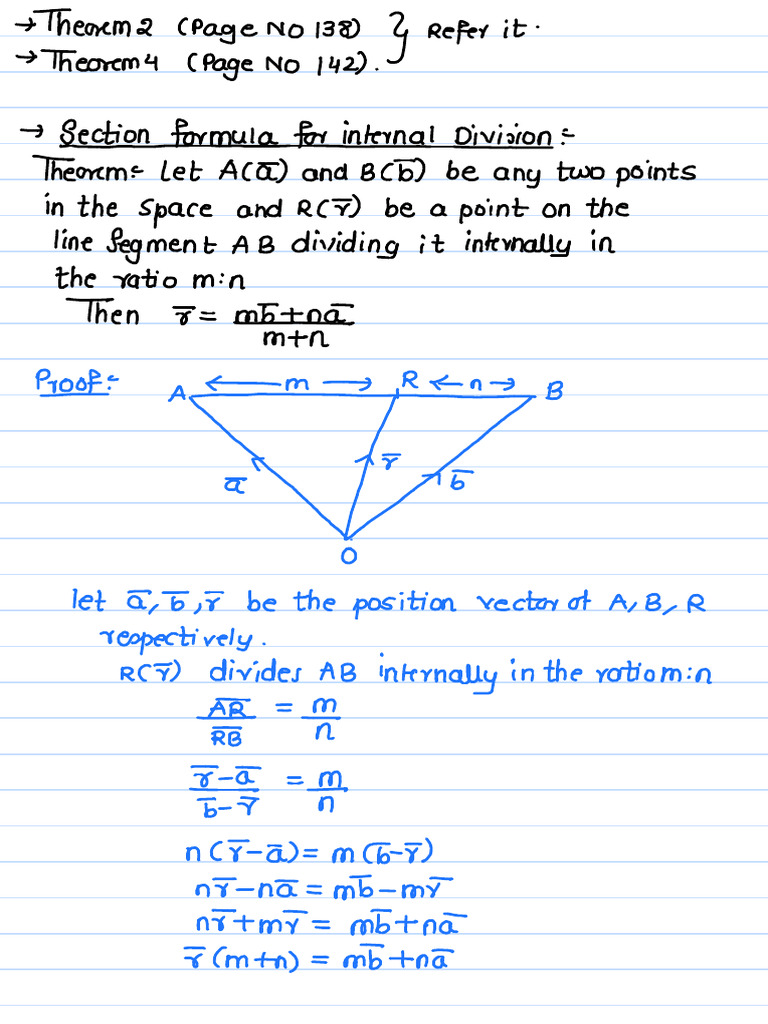 → Theorem 2 (Page No 138) } Refer it.
→ Theorem 4 (Page No 142).
→ Section formula for internal Division :-
Theorem:- Let A(a̅) and B(b̅) be any two points
in the space and R(r̅) be a point on the
line segment AB dividing it internally in
the ratio m:n
Then r̅ = mb̅+na̅
m+n
Proof:-
A ← m → R ← n → B
a̅ r̅ b̅
O
let a̅, b̅, r̅ be the position vector of A, B, R
respectively.
R(r̅) divides AB internally in the ratio m:n
A̅R̅ = m
R̅B̅ n
r̅-a̅ = m
b̅-r̅ n
n(r̅-a̅) = m(b̅-r̅)
nr̅-na̅ = mb̅-mr̅
nr̅+mr̅ = mb̅+na̅
r̅(m+n) = mb̅+na̅